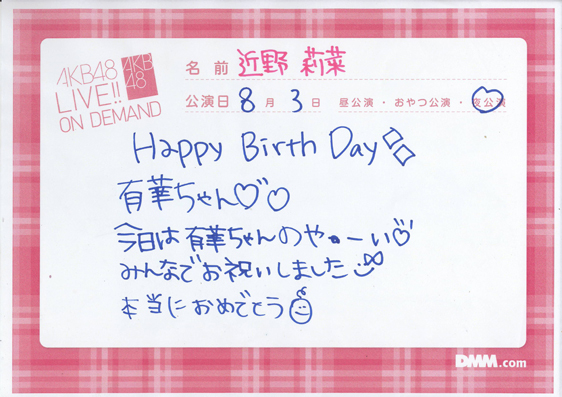 AKB48
LIVE!!
ON DEMAND
AKB
48
名 前 近野 莉菜
公演日 8 月 3 日 昼公演 ・ おやつ公演 ・ 夜公演
Happy Birth Day
有華ちゃん♡♡
今日は有華ちゃんのや・ーい♡
みんなでお祝いしました
本当におめでとう
DMM.com